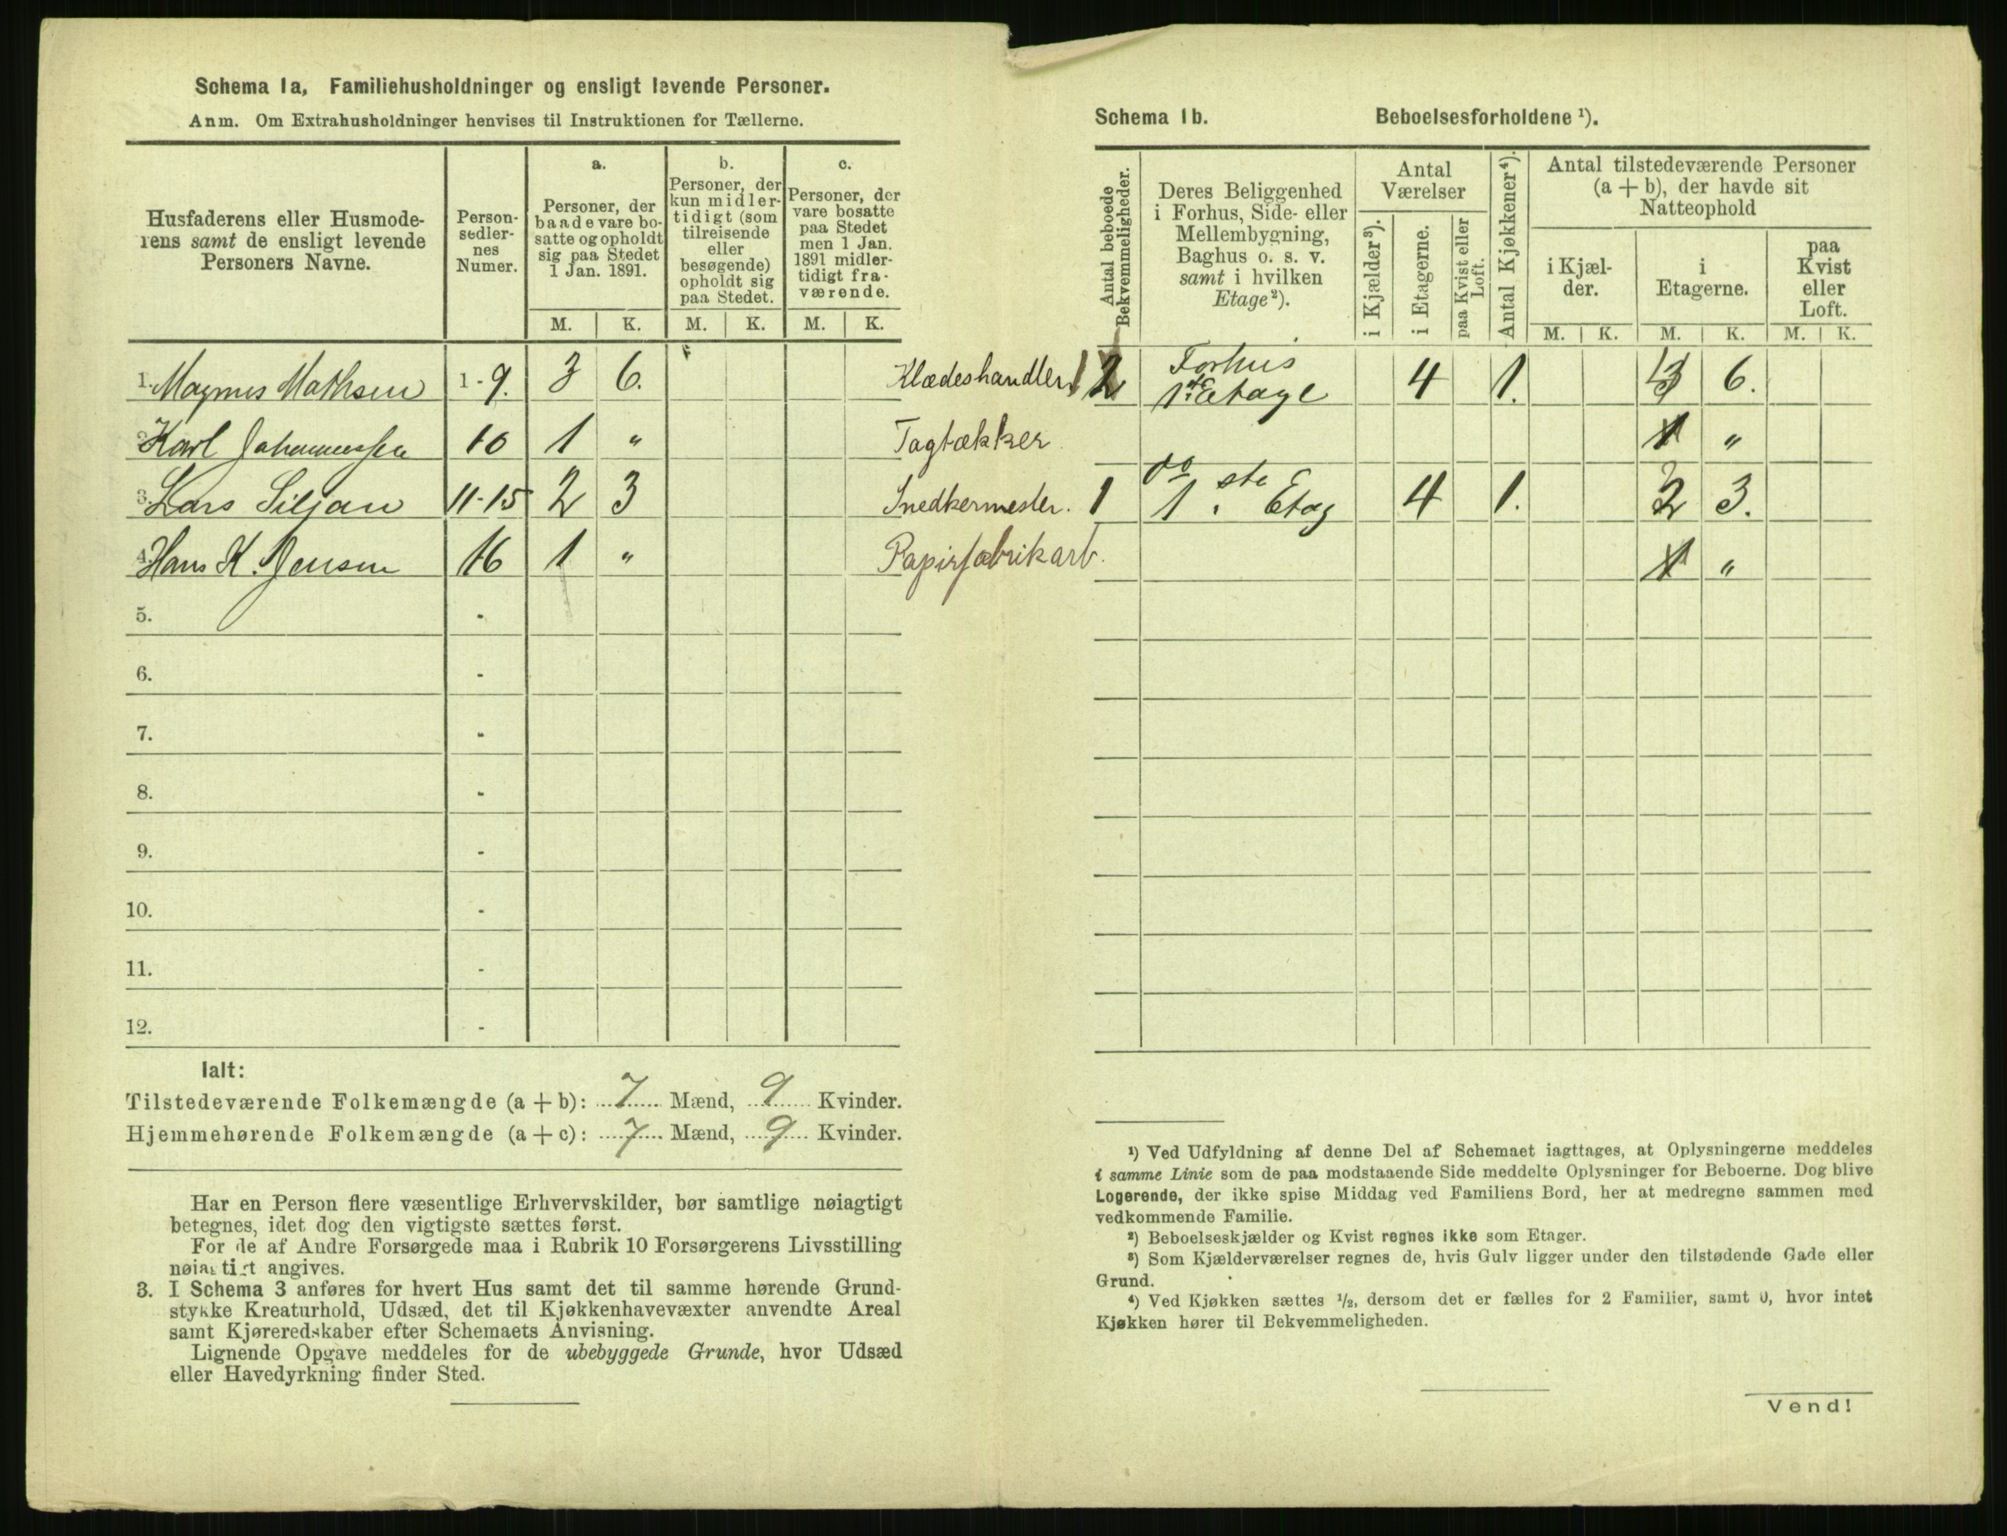 Schema 1a, Familiehusholdninger og ensligt levende Personer.
Anm. Om Extrahusholdninger henvises til Instruktionen for Tællerne.
Husfaderens eller Husmode-
rens samt de ensligt levende
Personers Navne.
Person-
sedler-
nes
Numer.
a.
Personer, der
baade vare bo-
satte og opholdt
sig paa Stedet
1 Jan. 1891.
b.
Personer, der
kun midler-
tidigt (som
tilreisende
eller
besøgende)
opholdt sig
paa Stedet.
c.
Personer, der
vare bosatte
paa Stedet
men 1 Jan.
1891 midler-
tidigt fra-
værende.
M. K. M. K. M. K.
1. Magnus Mathsen 1-9. 3 6. Klædeshandler
2. Karl Johannessen 10 1 " Tagtækker
3. Lars Siljan 11-15 2 3 Snedkermester.
4. Hans K. Jensen 16 1 " Papirfabrikarb.
5. -
6. -
7. -
8. -
9. -
10. -
11. -
12. -
Ialt:
Tilstedeværende Folkemængde (a + b): 7 Mænd, 9 Kvinder.
Hjemmehørende Folkemængde (a + c): 7 Mænd, 9 Kvinder.
Har en Person flere væsentlige Erhvervskilder, bør samtlige nøiagtigt
betegnes, idet dog den vigtigste sættes først.
For de af Andre Forsørgede maa i Rubrik 10 Forsørgerens Livsstilling
nøiagtigt angives.
3. I Schema 3 anføres for hvert Hus samt det til samme hørende Grund-
stykke Kreaturhold, Udsæd, det til Kjøkkenhavevæxter anvendte Areal
samt Kjøreredskaber efter Schemaets Anvisning.
Lignende Opgave meddeles for de ubebyggede Grunde, hvor Udsæd
eller Havedyrkning finder Sted.
Schema 1b. Beboelsesforholdene ¹).
Antal beboede
Bekvemmeligheder.
Deres Beliggenhed
i Forhus, Side- eller
Mellembygning,
Baghus o. s. v.
samt i hvilken
Etage²).
Antal
Værelser
i Kjælder³).
i Etagerne.
paa Kvist eller
Loft.
Antal Kjøkkener⁴).
Antal tilstedeværende Personer
(a + b), der havde sit
Natteophold
i Kjæl-
der.
i
Etagerne.
paa
Kvist
eller
Loft.
M. K. M. K. M. K.
1 2 Forhus
1ste Etage 4 1. 6.
1 "
1 do
1ste Etag 4 1. 2 3.
1 "
¹) Ved Udfyldning af denne Del af Schemaet iagttages, at Oplysningerne meddeles
i samme Linie som de paa modstaaende Side meddelte Oplysninger for Beboerne. Dog blive
Logerende, der ikke spise Middag ved Familiens Bord, her at medregne sammen med
vedkommende Familie.
²) Beboelseskjælder og Kvist regnes ikke som Etager.
³) Som Kjælderværelser regnes de, hvis Gulv ligger under den tilstødende Gade eller
Grund.
⁴) Ved Kjøkken sættes ½, dersom det er fælles for 2 Familier, samt 0, hvor intet
Kjøkken hører til Bekvemmeligheden.
Vend!